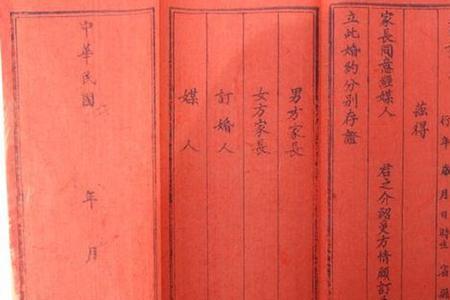 行年 歲 月 日 時生
茲得
家長同意經媒人 君之介紹更方情願訂
立此婚約分別存證
男方家長
女方家長
訂婚人
媒人
中華民國 年 月